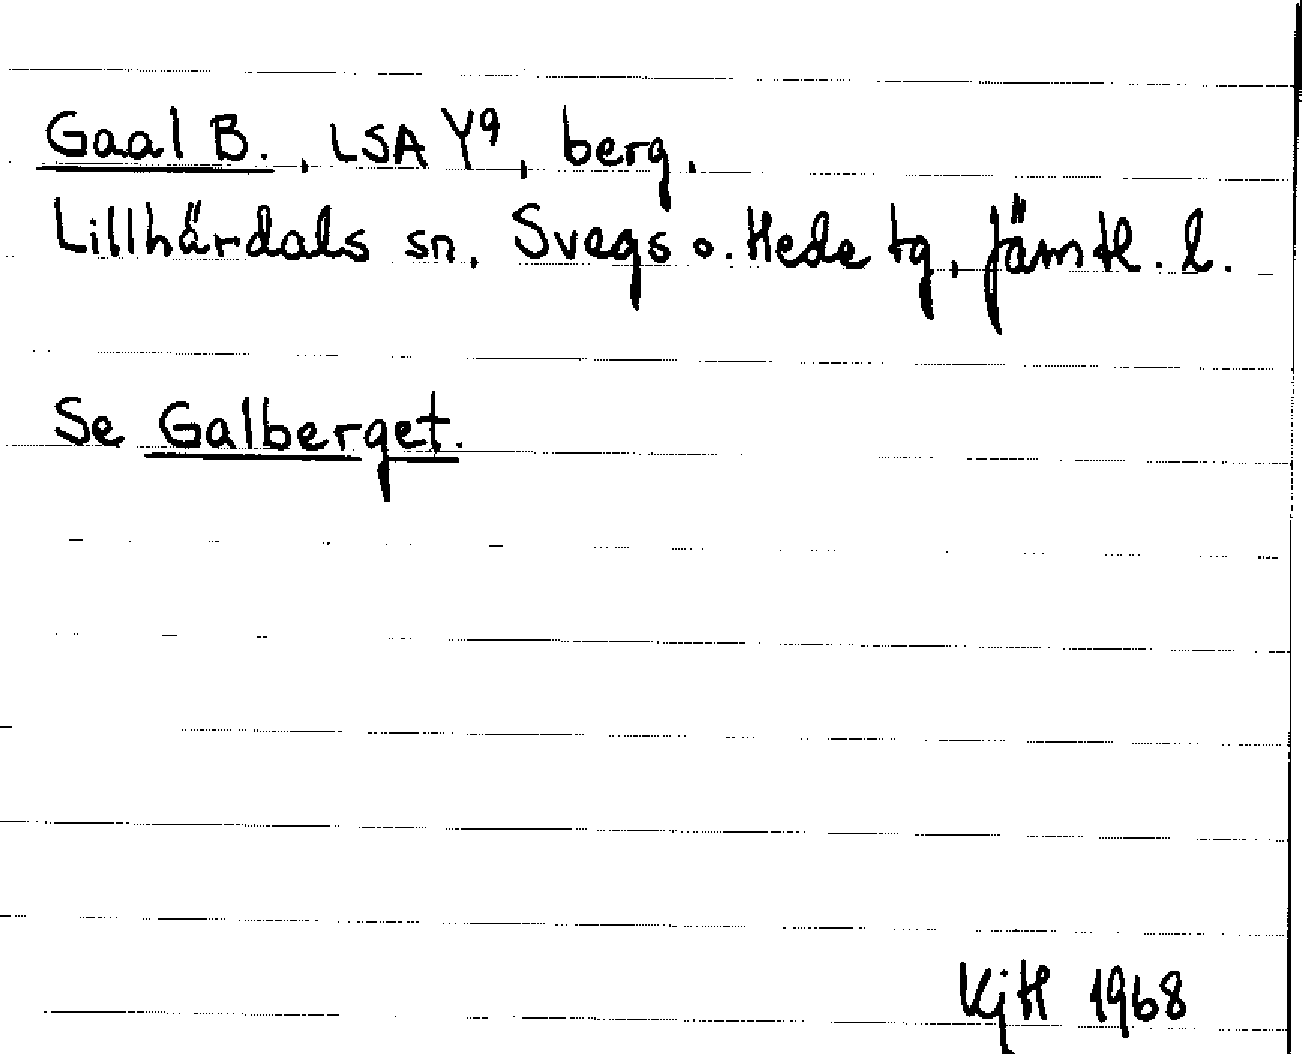 Gaal B., LSA Y9, berg.
Lillhärdals sn, Svegs o. Hede tg, Jämtl. l.
Se Galberget.
KjH 1968